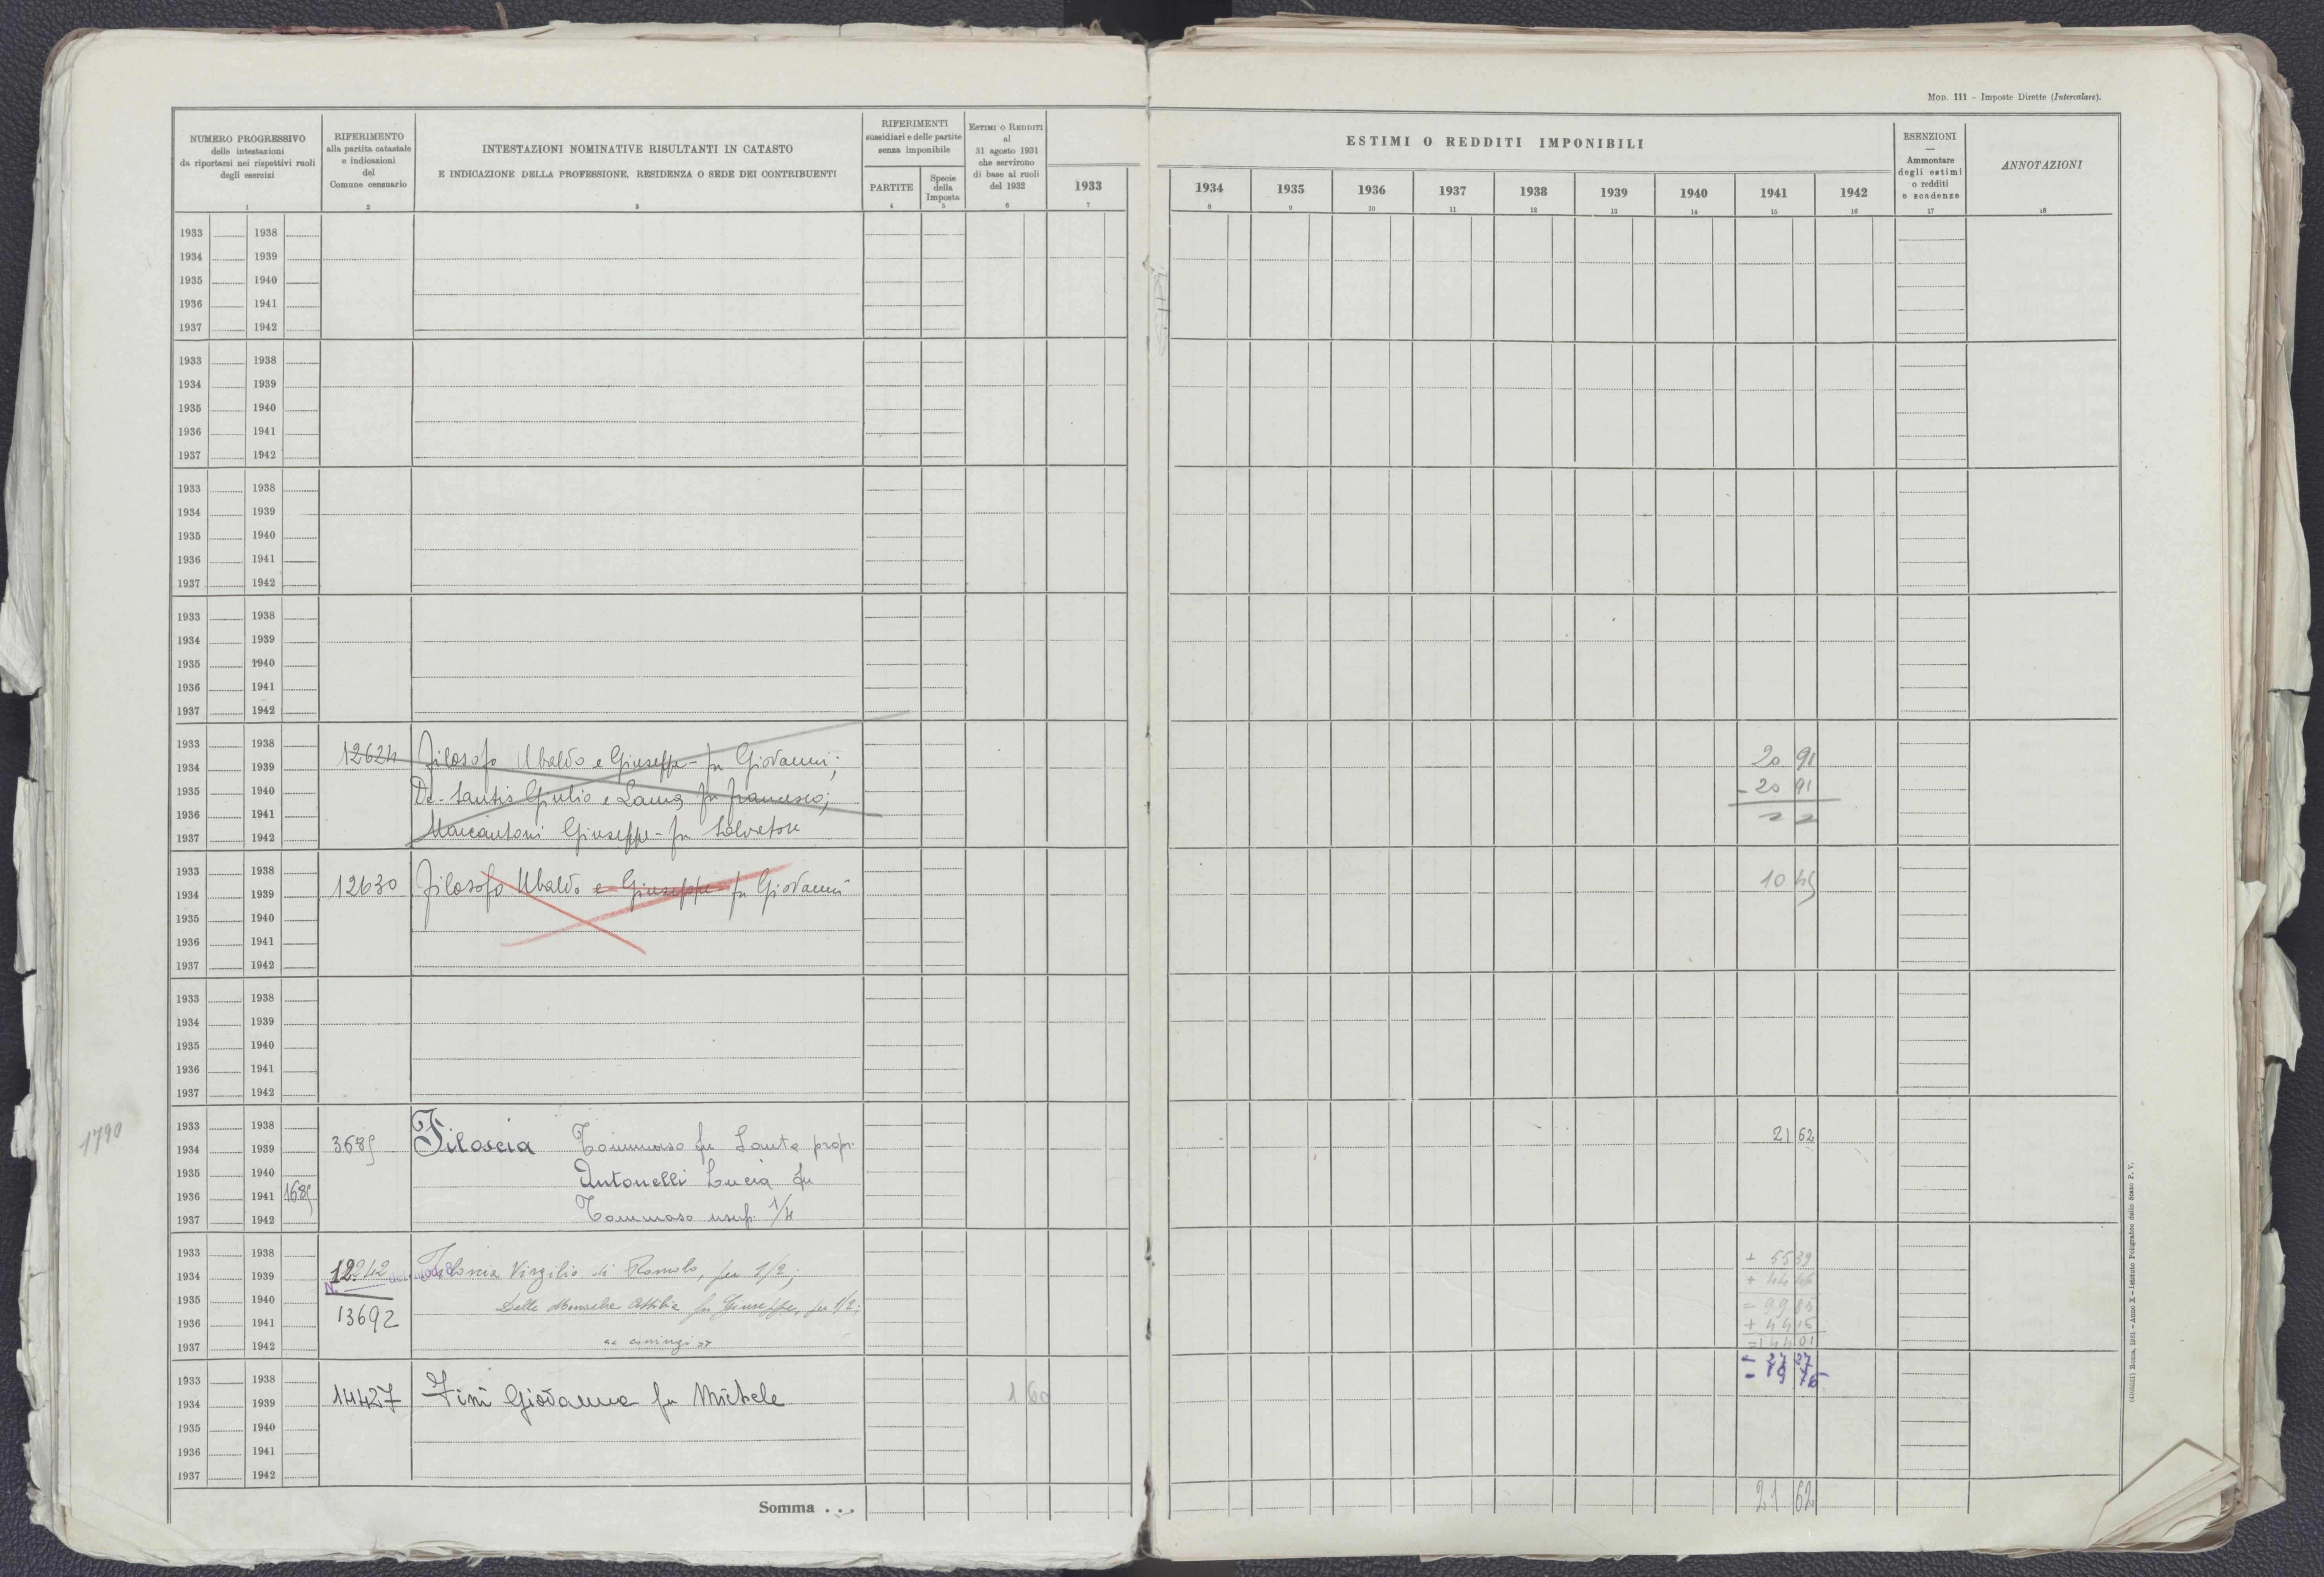 MOD. 111 – Imposte Dirette (Intercalare).
NUMERO PROGRESSIVO
delle intestazioni
da riportarsi nei rispettivi ruoli
degli esercizi
1
RIFERIMENTO
alla partita catastale
e indicazioni
del
Comune censuario
2
INTESTAZIONI NOMINATIVE RISULTANTI IN CATASTO
E INDICAZIONE DELLA PROFESSIONE, RESIDENZA O SEDE DEI CONTRIBUENTI
3
RIFERIMENTI
sussidiari e delle partite
senza imponibile
PARTITE
4
Specie
della
Imposta
5
ESTIMI O REDDITI
al
31 agosto 1931
che servirono
di base ai ruoli
del 1932
6
1933
7
ESTIMI O REDDITI IMPONIBILI
1934 1935 1936 1937 1938 1939 1940 1941 1942
8 9 10 11 12 13 14 15 16
ESENZIONI
—
Ammontare
degli estimi
o redditi
e scadenze
17
ANNOTAZIONI
18
1933 1938
1934 1939
1935 1940
1936 1941
1937 1942
1933 1938
1934 1939
1935 1940
1936 1941
1937 1942
1933 1938
1934 1939
1935 1940
1936 1941
1937 1942
1933 1938
1934 1939
1935 1940
1936 1941
1937 1942
1933 1938
1934 1939 12624 Filosofo Ubaldo e Giuseppe - fu Giovanni; 20 91
1935 1940 De-Santis Giulio e Laura fu Francesco; - 20 91
1936 1941
1937 1942 Marcantoni Giuseppe - fu Salvatore
1933 1938
1934 1939 12630 Filosofo Ubaldo e Giuseppe fu Giovanni 10 45
1935 1940
1936 1941
1937 1942
1933 1938
1934 1939
1935 1940
1936 1941
1937 1942
1790
1933 1938
1934 1939 3685 Filoscia Tommaso fu Sante propr. 21 62
1935 1940 Antonelli Lucia fu
1936 1941 1685
1937 1942 Tommaso usuf. 1/4
1933 1938 + 55 39
1934 1939 12242 Filoscia Virgilio di Romolo, per 1/2; + 44 46
1935 1940 N. Delle Monache Attilia fu Giuseppe, per 1/2; = 99 85
1936 1941 13692 + 44 16
1937 1942 «coniugi» = 144 01
1933 1938 - 27 27
1934 1939 14427 Fini Giovanna fu Michele 1 60
1935 1940
1936 1941
1937 1942
Somma . . . 21 62
(4105521) Roma, 1931 – Anno X – Istituto Poligrafico dello Stato P. V.